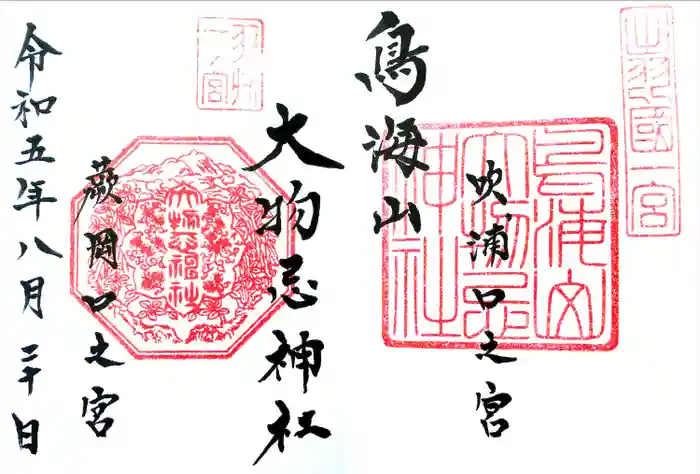 出羽國一宮
吹浦口之宮
鳥海山
鳥海山
大物忌
神社
大物忌神社
羽州
一ノ宮
蕨岡口之宮
令和五年八月二十日